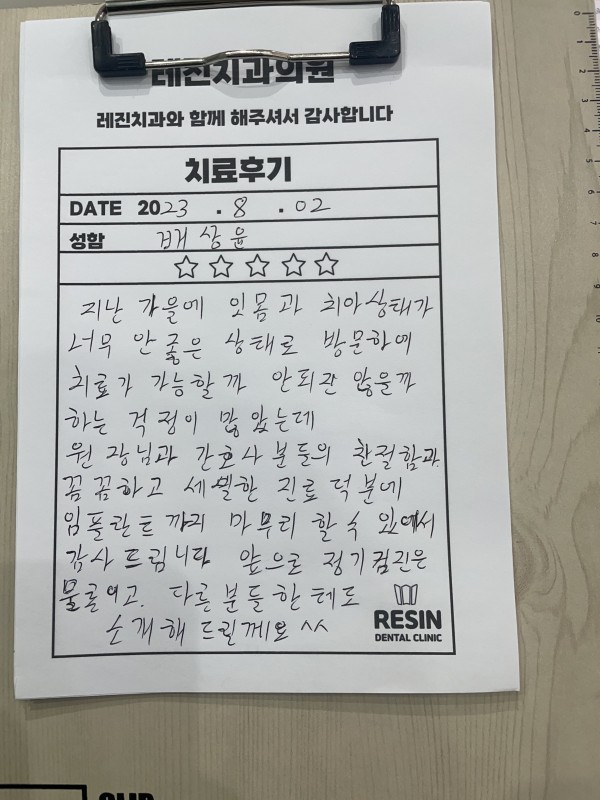 레진치과의원
레진치과와 함께 해주셔서 감사합니다
치료후기
DATE 2023 . 8 . 02
성함 배상윤
☆☆☆☆☆
지난 가을에 잇몸과 치아상태가
너무 안 좋은 상태로 방문하여
치료가 가능할까 안되진 않을까
하는 걱정이 많았는데
원장님과 간호사분들의 친절함과
꼼꼼하고 세밀한 진료 덕분에
임플란트까지 마무리 할 수 있어서
감사드립니다 앞으로 정기검진은
물론이고. 다른분들한테도
소개해 드릴께요 ^^
RESIN
DENTAL CLINIC